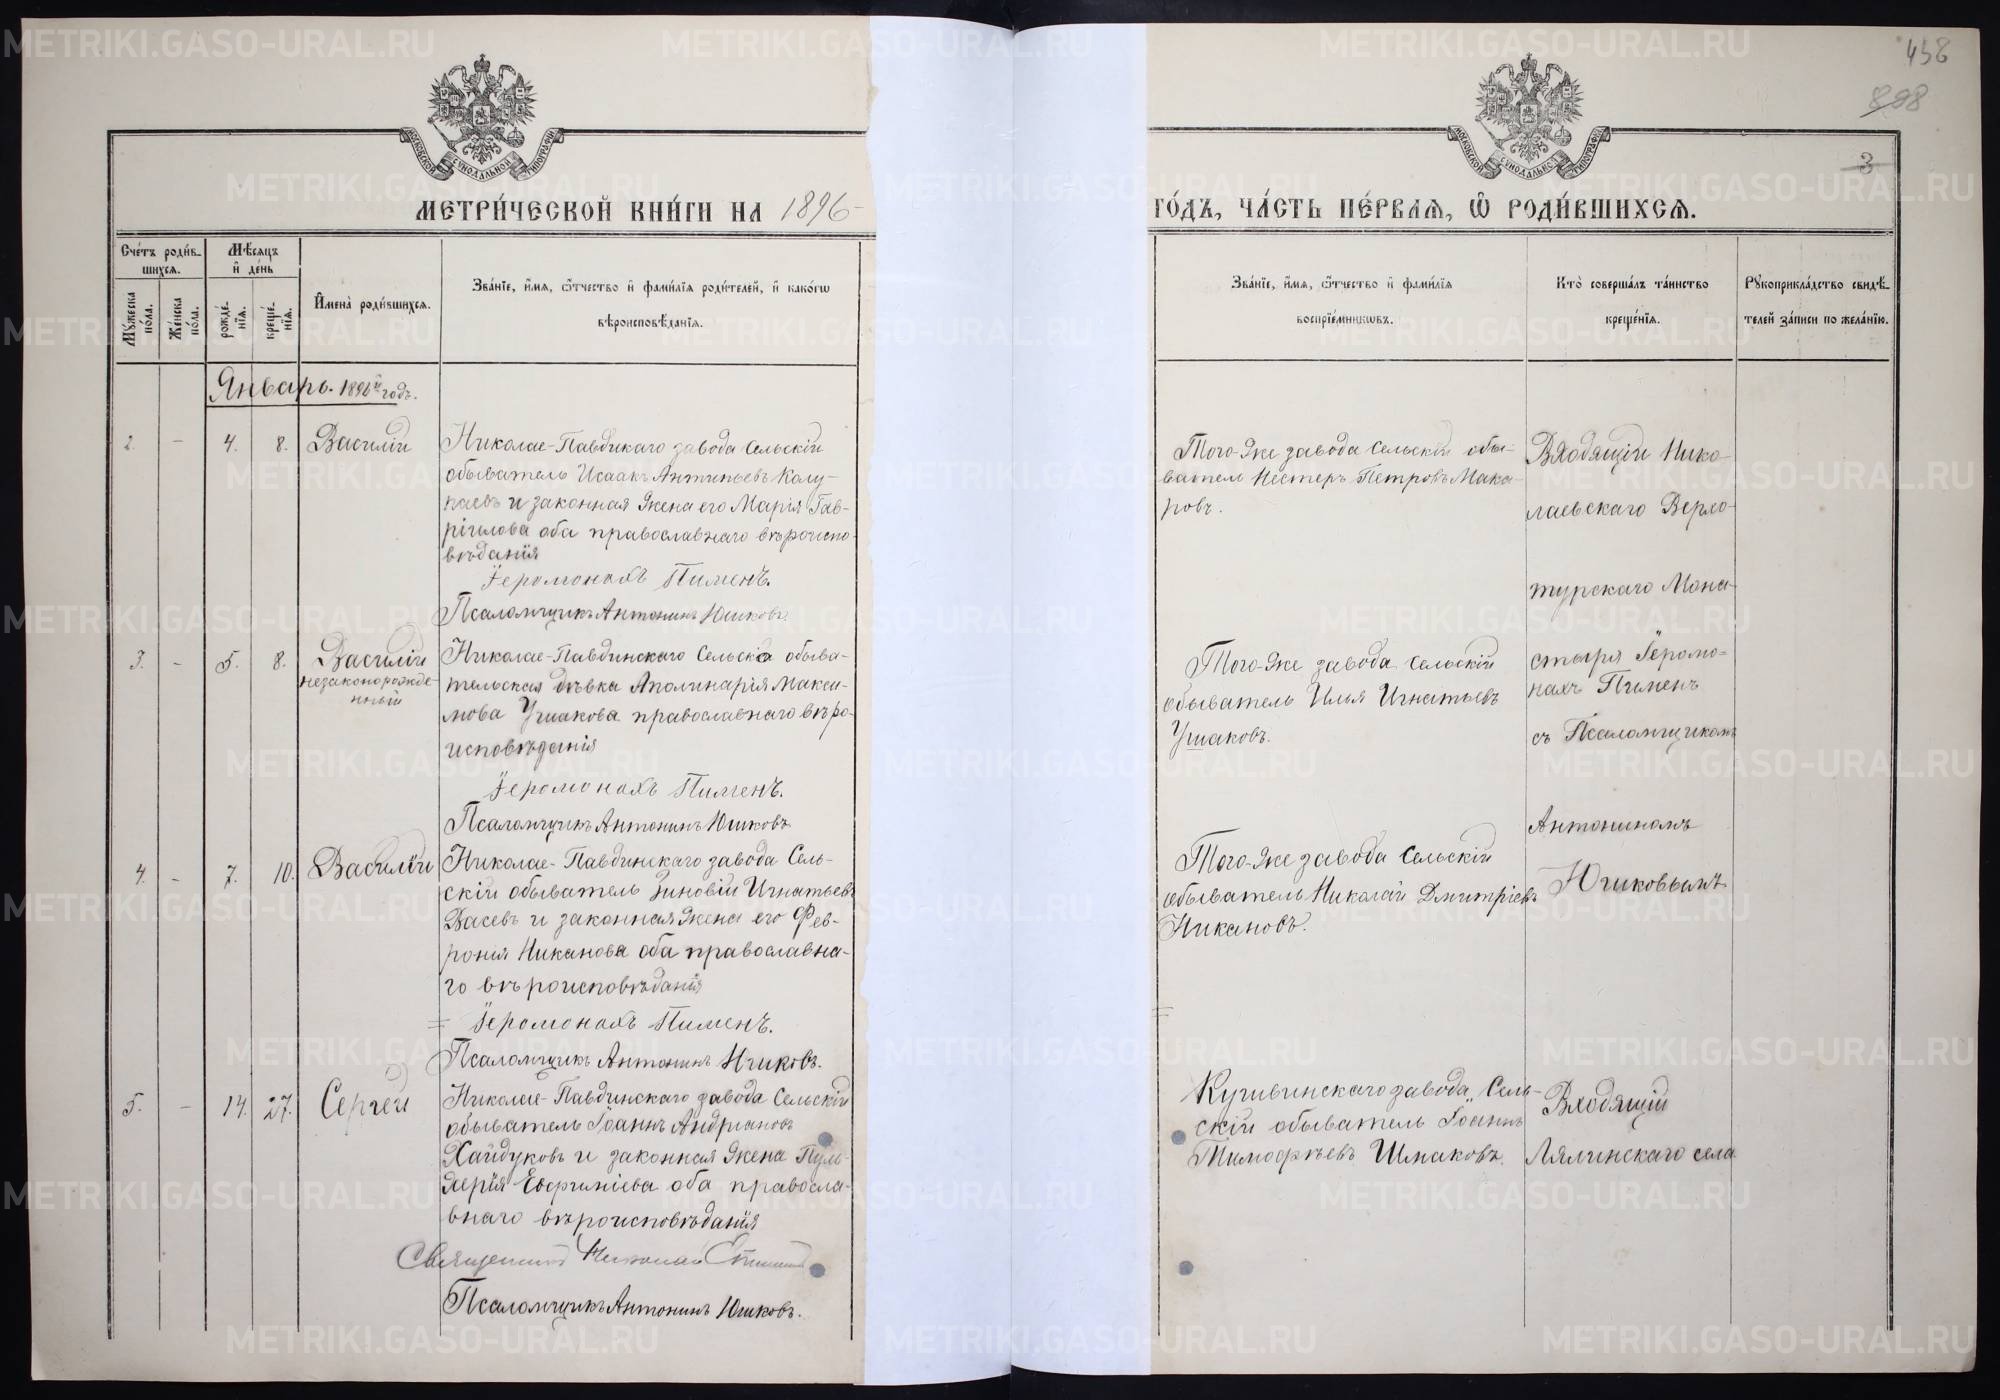 458
898
3
МОСКОВСКОЙ СѴНОДАЛЬНОЙ ТИПОГРАФІИ
МОСКОВСКОЙ СѴНОДАЛЬНОЙ ТИПОГРАФІИ
МЕТРИ́ЧЕСКОЙ КНИ́ГИ НА 1896 ГО́ДЪ, ЧА́СТЬ ПЕ́РВАЯ, Ѡ РОДИ́ВШИХСЯ.
Сче́тъ роди́в-
шихся.
Му́жеска по́ла.
Же́нска по́ла.
Мѣ́сяцъ
и де́нь
рожде́-
нїя.
креще́-
нїя.
Имена̀ роди́вшихся.
Зва́нїе, и́мя, ѻ́тчество и фами́лїя роди́телей, и како́гѡ
вѣроисповѣ́данїя.
Зва́нїе, и́мя, ѻ́тчество и фами́лїя
воспрїе́мникѡвъ.
Кто̀ соверша́лъ та́инство
креще́нїя.
Рукоприкла́дство свидѣ́-
телей за́писи по жела́нїю.
Январь. 1896й годъ.
2. - 4. 8. Василій
Николае-Павдикаго завода Сельскій
обыватель Исаакъ Антипьевъ Колу-
паевъ и законная жена его Марія Гав-
ріилова оба православнаго вѣроиспо-
вѣданія
Іеромонахъ Пименъ.
Псаломщикъ Антонинъ Юшковъ.
Того-же завода сельскій обы-
ватель Нестеръ Петровъ Мака-
ровъ.
Входящій Нико-
лаевскаго Верхо-
турскаго Мона-
стыря Іеромо-
нахъ Пименъ
съ Псаломщикомъ
Антониномъ
Юшковымъ
3. - 5. 8. Василій
незаконорожде-
нный
Николае-Павдинскаго Сельска обыва-
тельская дѣвка Аполинарія Макси-
мова Ушакова православнаго вѣро-
исповѣданія
Іеромонахъ Пименъ.
Псаломщикъ Антонинъ Юшковъ
Того-же завода сельскій
обыватель Илья Игнатьевъ
Ушаковъ.
4. - 7. 10. Василій
Николае-Павдинскаго завода Сель-
скій обыватель Зиновій Игнатьевъ
Васевъ и законная жена его Фев-
ронія Никанова оба православна-
го вѣроисповѣданія
= Іеромонахъ Пименъ.
Псаломщикъ Антонинъ Юшковъ.
Того-же завода Сельскій
обыватель Николай Дмитріевъ
Никановъ.
=
5. - 14. 27. Сергей
Николае-Павдинскаго завода Сельскій
обыватель Іоаннъ Андріановъ
Хайдуковъ и законная жена Пуль-
херія Евфиміева оба правосла-
внаго вѣроисповѣданія
Священникъ Николай
Псаломщикъ Антонинъ Юшковъ.
Кушвинскаго завода Сель-
скій обыватель Іоаннъ
Тимофѣевъ Шпаковъ.
Входящій
Лялинскаго села
METRIKI.GASO-URAL.RU